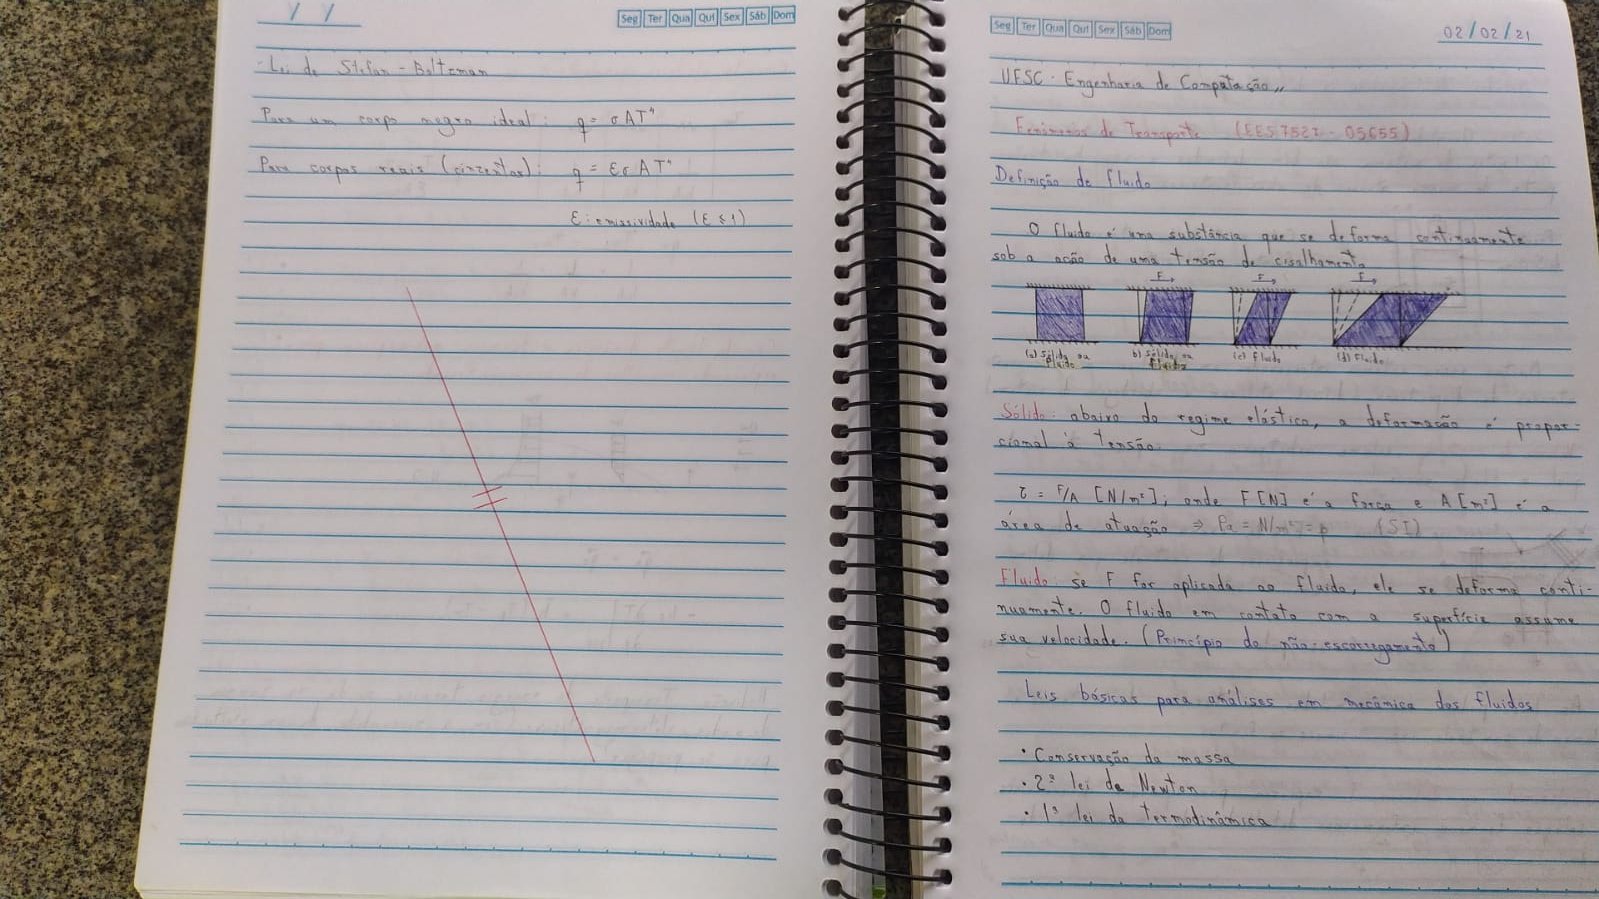 / /
Seg Ter Qua Qui Sex Sáb Dom
- Lei de Stefan - Boltzman
Para um corpo negro ideal: q = σAT⁴
Para corpos reais (cinzentos): q = εσAT⁴
ε: emissividade (ε ≤ 1)
Seg Ter Qua Qui Sex Sáb Dom
02/02/21
UFSC - Engenharia de Computação,,
Fenômenos de Transporte (EES7527 - 05655)
Definição de fluido
O fluido é uma substância que se deforma continuamente
sob a ação de uma tensão de cisalhamento
F F F
(a) Sólido ou fluido
b) Sólido ou fluido
(c) Fluido
(d) Fluido
Sólido: abaixo do regime elástico, a deformação é propor-
cional à tensão.
τ = F/A [N/m²]; onde F [N] é a força e A [m²] é a
área de atuação ⇒ Pa = N/m² = p (SI)
Fluido: se F for aplicada ao fluido, ele se deforma conti-
nuamente. O fluido em contato com a superfície assume
sua velocidade. (Princípio do não-escorregamento)
Leis básicas para análises em mecânica dos fluidos
· Conservação da massa
· 2ª lei de Newton
· 1ª lei da termodinâmica